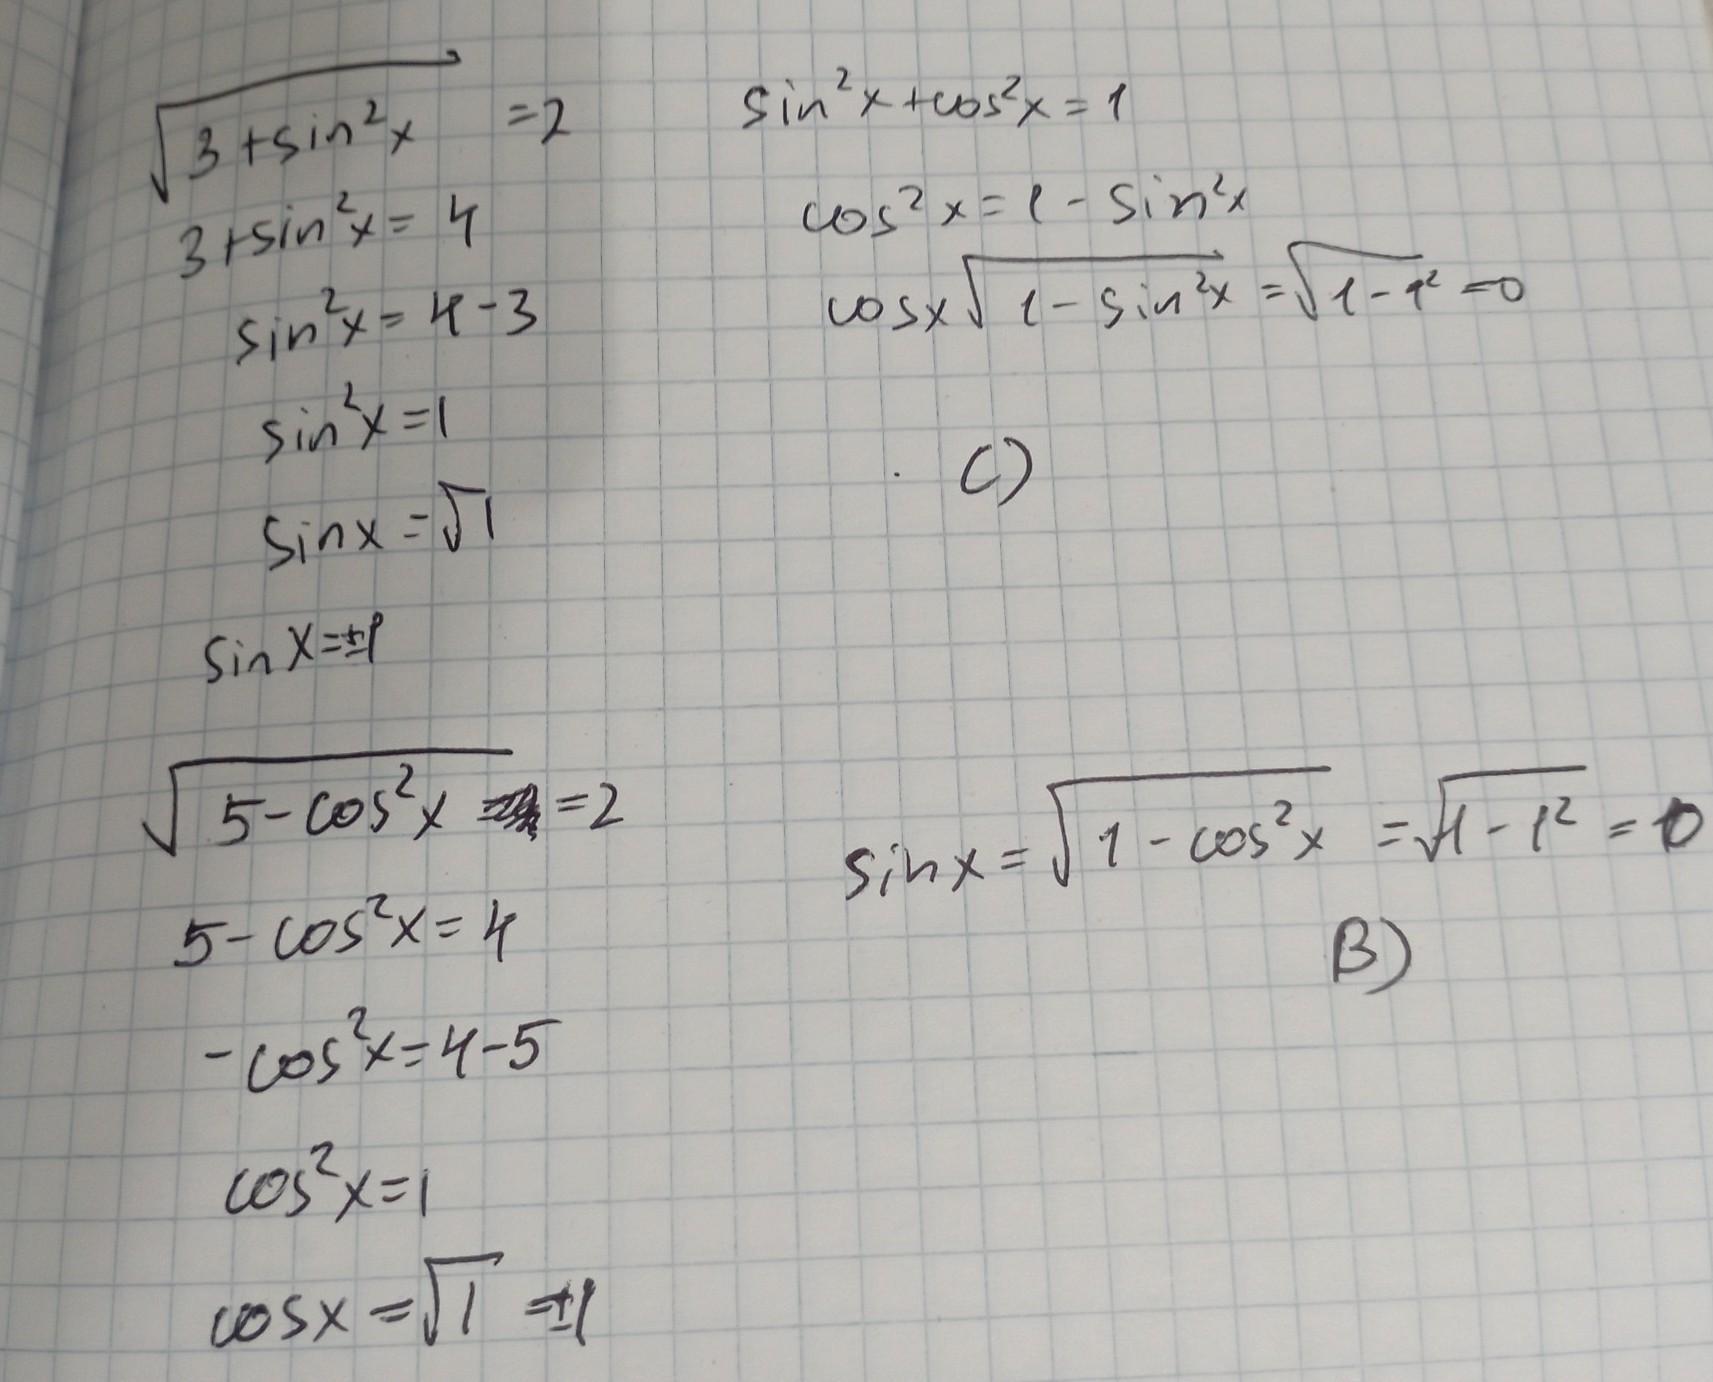 √3+sin²x =2
3+sin²x=4
sin²x=4-3
sin²x=1
sinx=√1
sinx=±1
sin²x+cos²x=1
cos²x=1-sin²x
cosx√1-sin²x=√1-1²=0
C)
√5-cos²x =2
5-cos²x=4
-cos²x=4-5
cos²x=1
cosx=√1=±1
sinx=√1-cos²x=√1-1²=0
B)